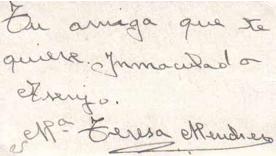 Tu amiga que te
quiere. Inmaculada
Asenjo.
Mª Teresa Mendrero